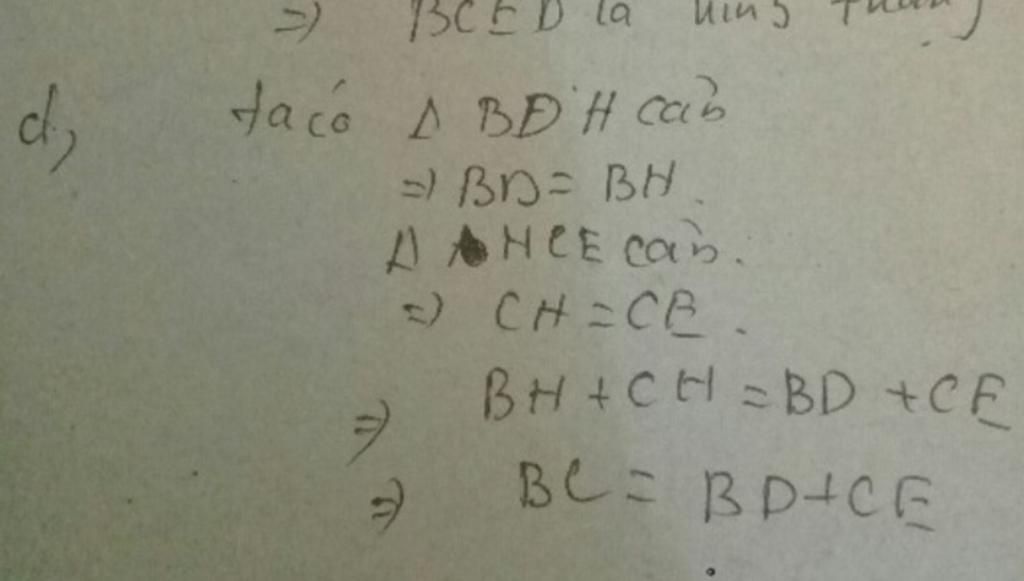 => BCED là hình thang
d, ta có Δ BDH cân
=> BD = BH.
Δ HCE cân.
=> CH = CE.
=> BH + CH = BD + CE
=> BC = BD + CE